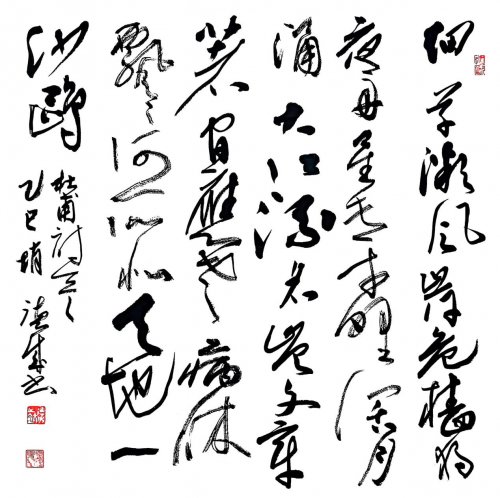 细草微风岸危樯独
夜舟星垂平野阔月
涌大江流名岂文章
著官應老病休
飄々何所似天地一
沙鷗
杜甫詩
乙巳 书